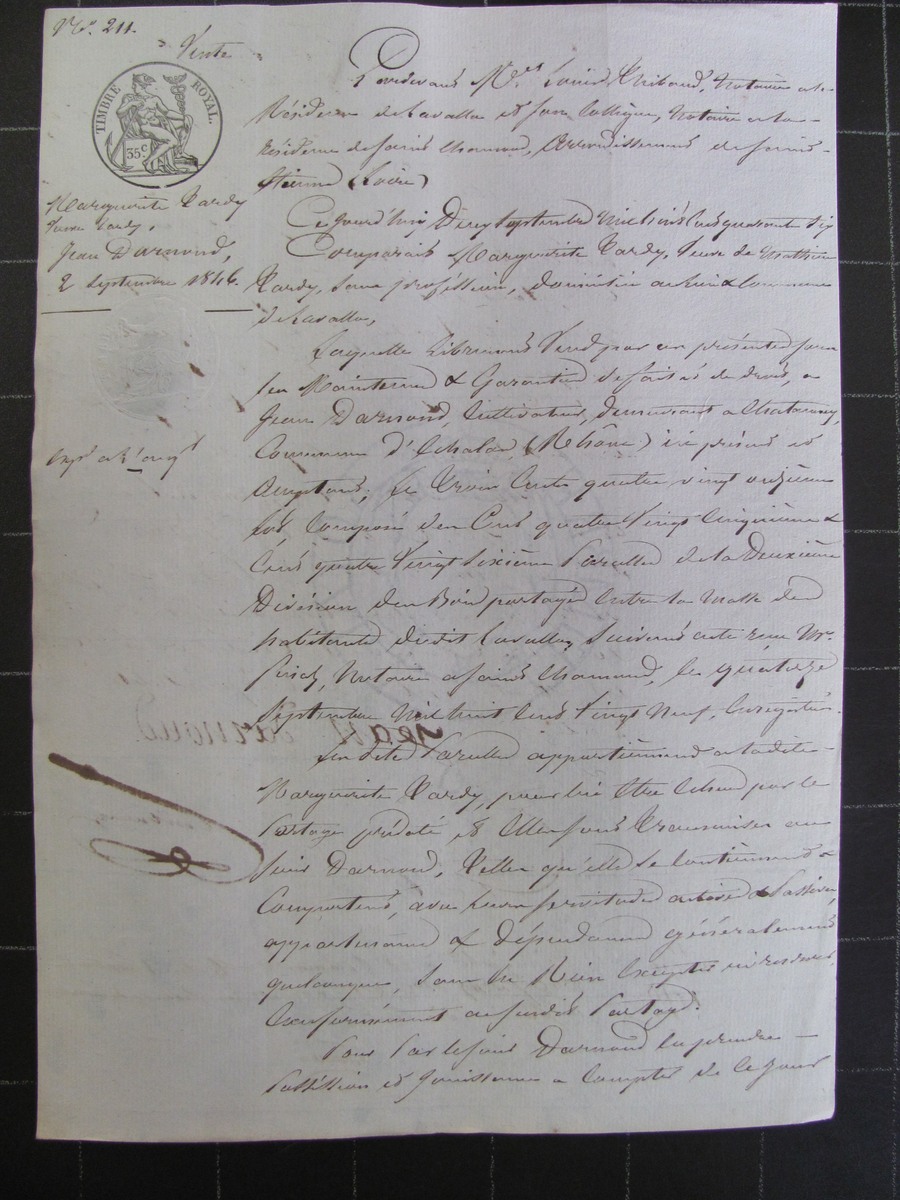 N.° 211.
Vente
TIMBRE ROYAL.
35 c.
Marguerite Tardy
Jean Darnoud,
2 Septembre 1846.
Pardevant M.es Louis Thibaud, Notaire à la
Résidence de Lavalla et son Collègue, Notaire à la
résidence de Saint Chamond, Arrondissement de Saint
Etienne (Loire)
Ce jourd'hui, Deux Septembre mil huit cent quarante six
Comparait Marguerite Tardy, Veuve de Mathieu
Tardy, sans profession, domiciliée au lieu & Commune
de Lavalla,
Laquelle librement Vend par ces présentes sous
les Maintenue & Garantie de fait et de droit, à
Jean Darnoud, Cultivateur, demeurant à
Commune d'Echalas (Rhône) ici présent et
Acceptant, Le Trois Cent quatre vingt onzième
Lot Composé des Cent quatre Vingt Cinquième &
Cent quatre Vingt Sixième Parcelles de la Deuxième
Division des Bois partagés Entre la Masse des
habitants dudit Lavalla, Suivant acte reçu M.e
Notaire à Saint Chamond, le quatorze
Septembre Mil huit Cent Vingt Neuf, Enregistré.
Les dites Parcelles appartiennent à ladite
Marguerite Tardy, pour lui être échues par le
Partage prédaté et Elles sont Transmises au
Sieur Darnoud, Telles qu'elles se Contiennent &
Comportent, avec leurs servitudes actives & Passives,
appartenances & dépendances généralement
quelconques, Sans en Rien Excepter ni réserver,
Conformément au susdit Partage.
Pour Par le sieur Darnoud en prendre
Possession et Jouissance à Compter de Ce Jour